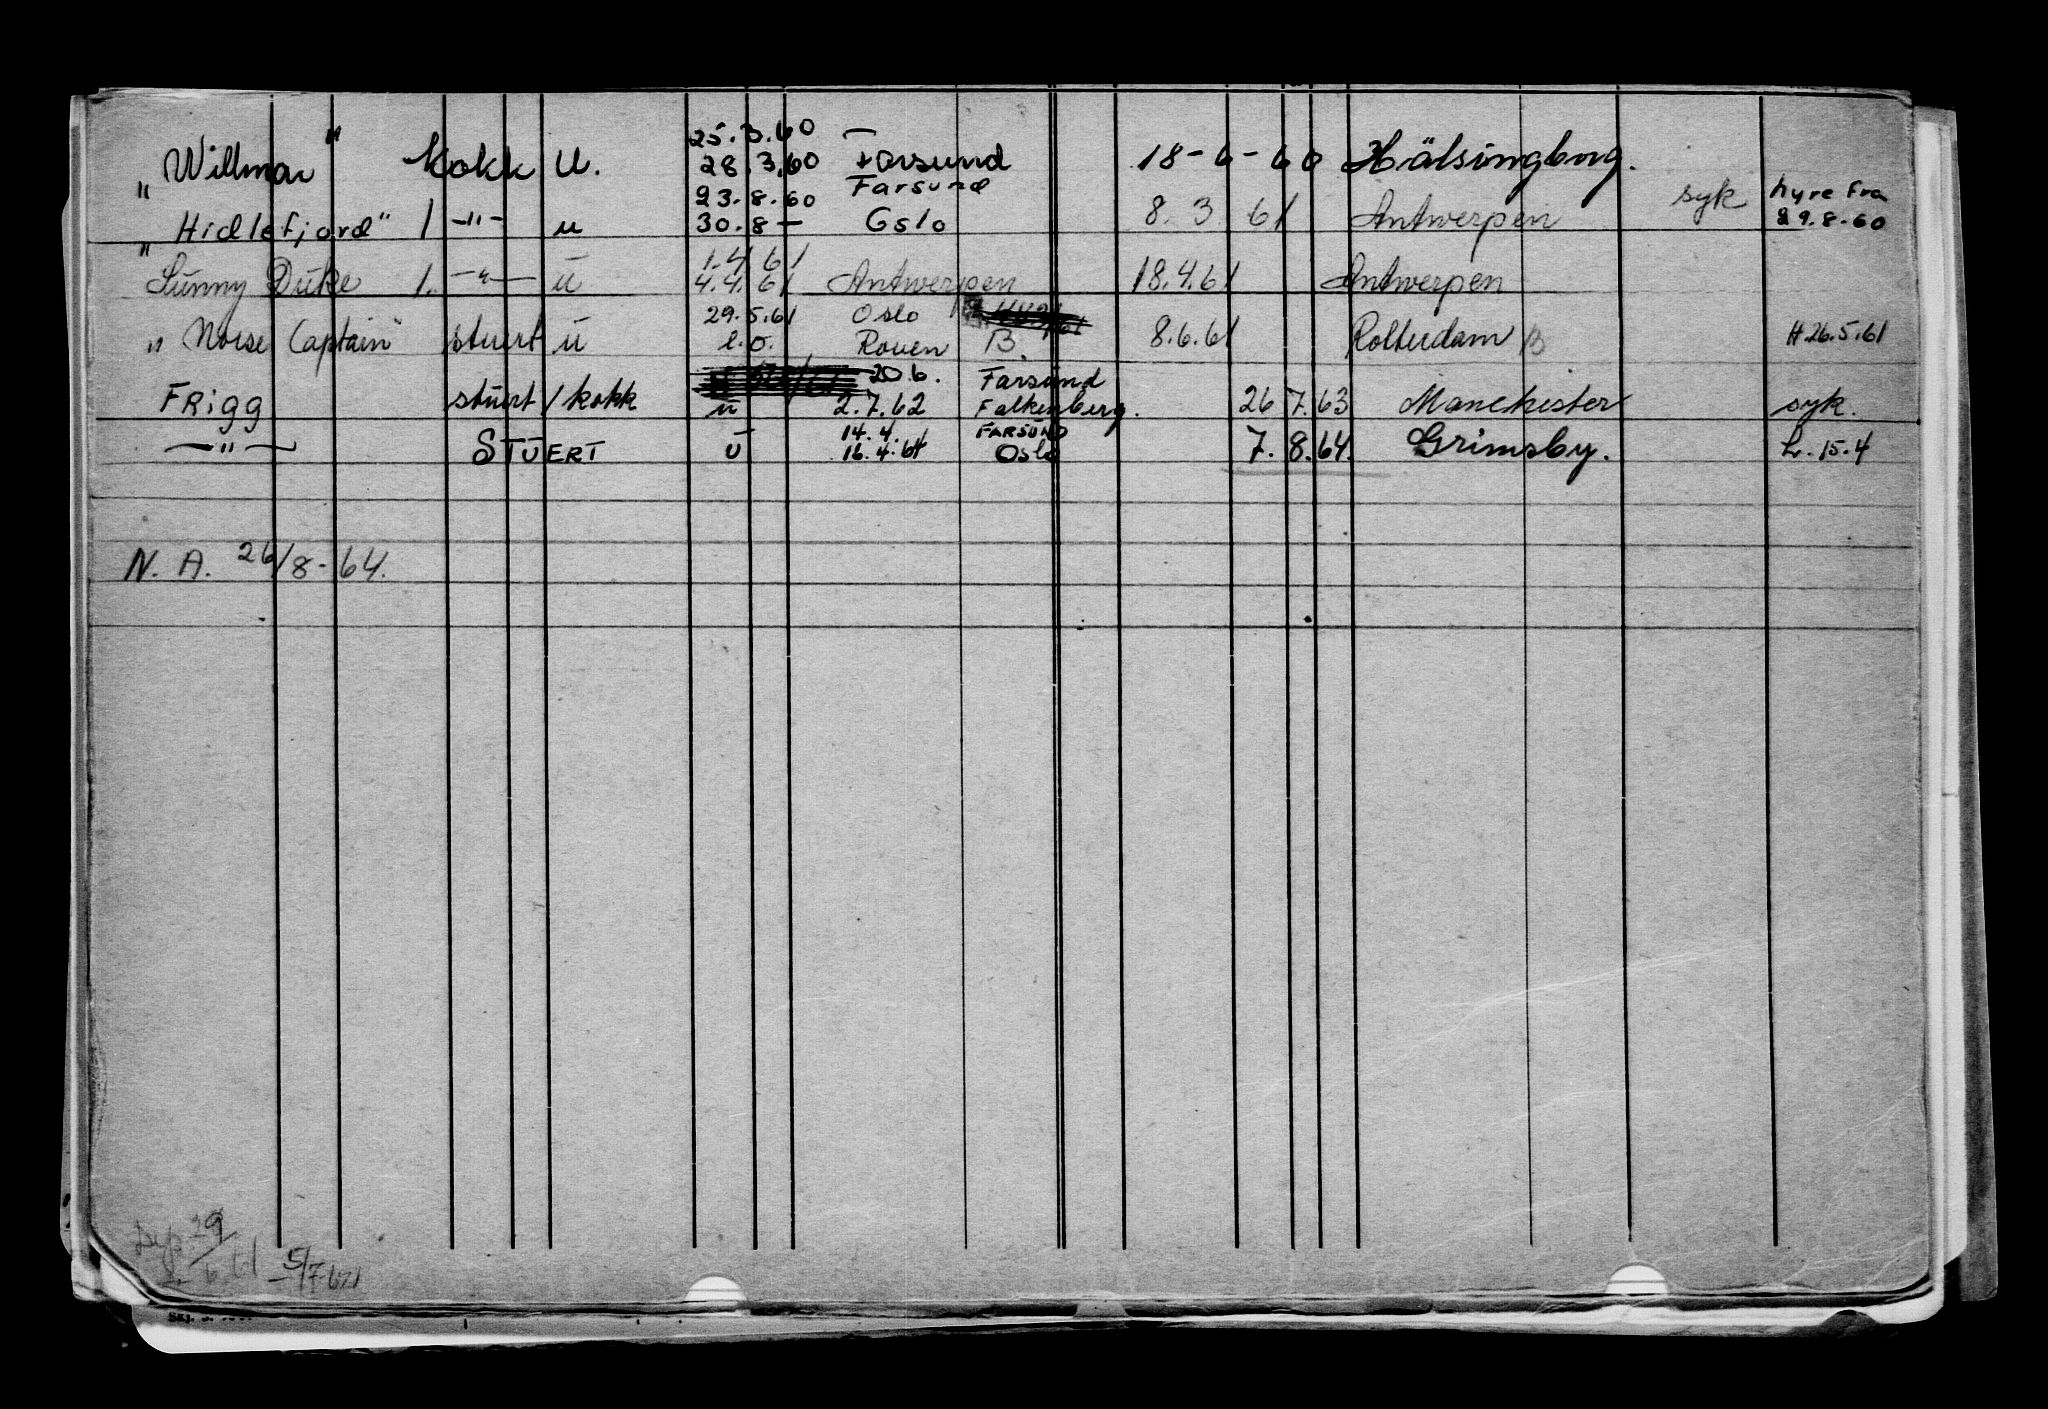 25.3.60
„Willmar" Kokk U. 28.3.60 Farsund 18-6-60 Hälsingborg.
23.8.60 Farsund syk hyre fra
„Hidlefjord" 1 -"- u 30.8- Oslo 8. 3 61 Antwerpen 29.8-60
1.4 61
Sunny Duke 1. -"- u 4.4.61 Antwerpen 18.4.61 Antwerpen
29.5.61 Oslo
„Norse Captain" stuert u l.o. Rouen B. 8.6.61 Rotterdam B H.26.5.61
20.6. Farsund
Frigg stuert/kokk u 2.7.62 Falkenberg. 26 7.63 Manchester syk.
14.4. FARSUND
-"- STUERT U 16.4.64 Oslo 7.8.64. Grimsby. h.15.4
N. A. 26/8-64.
29
6. 61 5/7-61